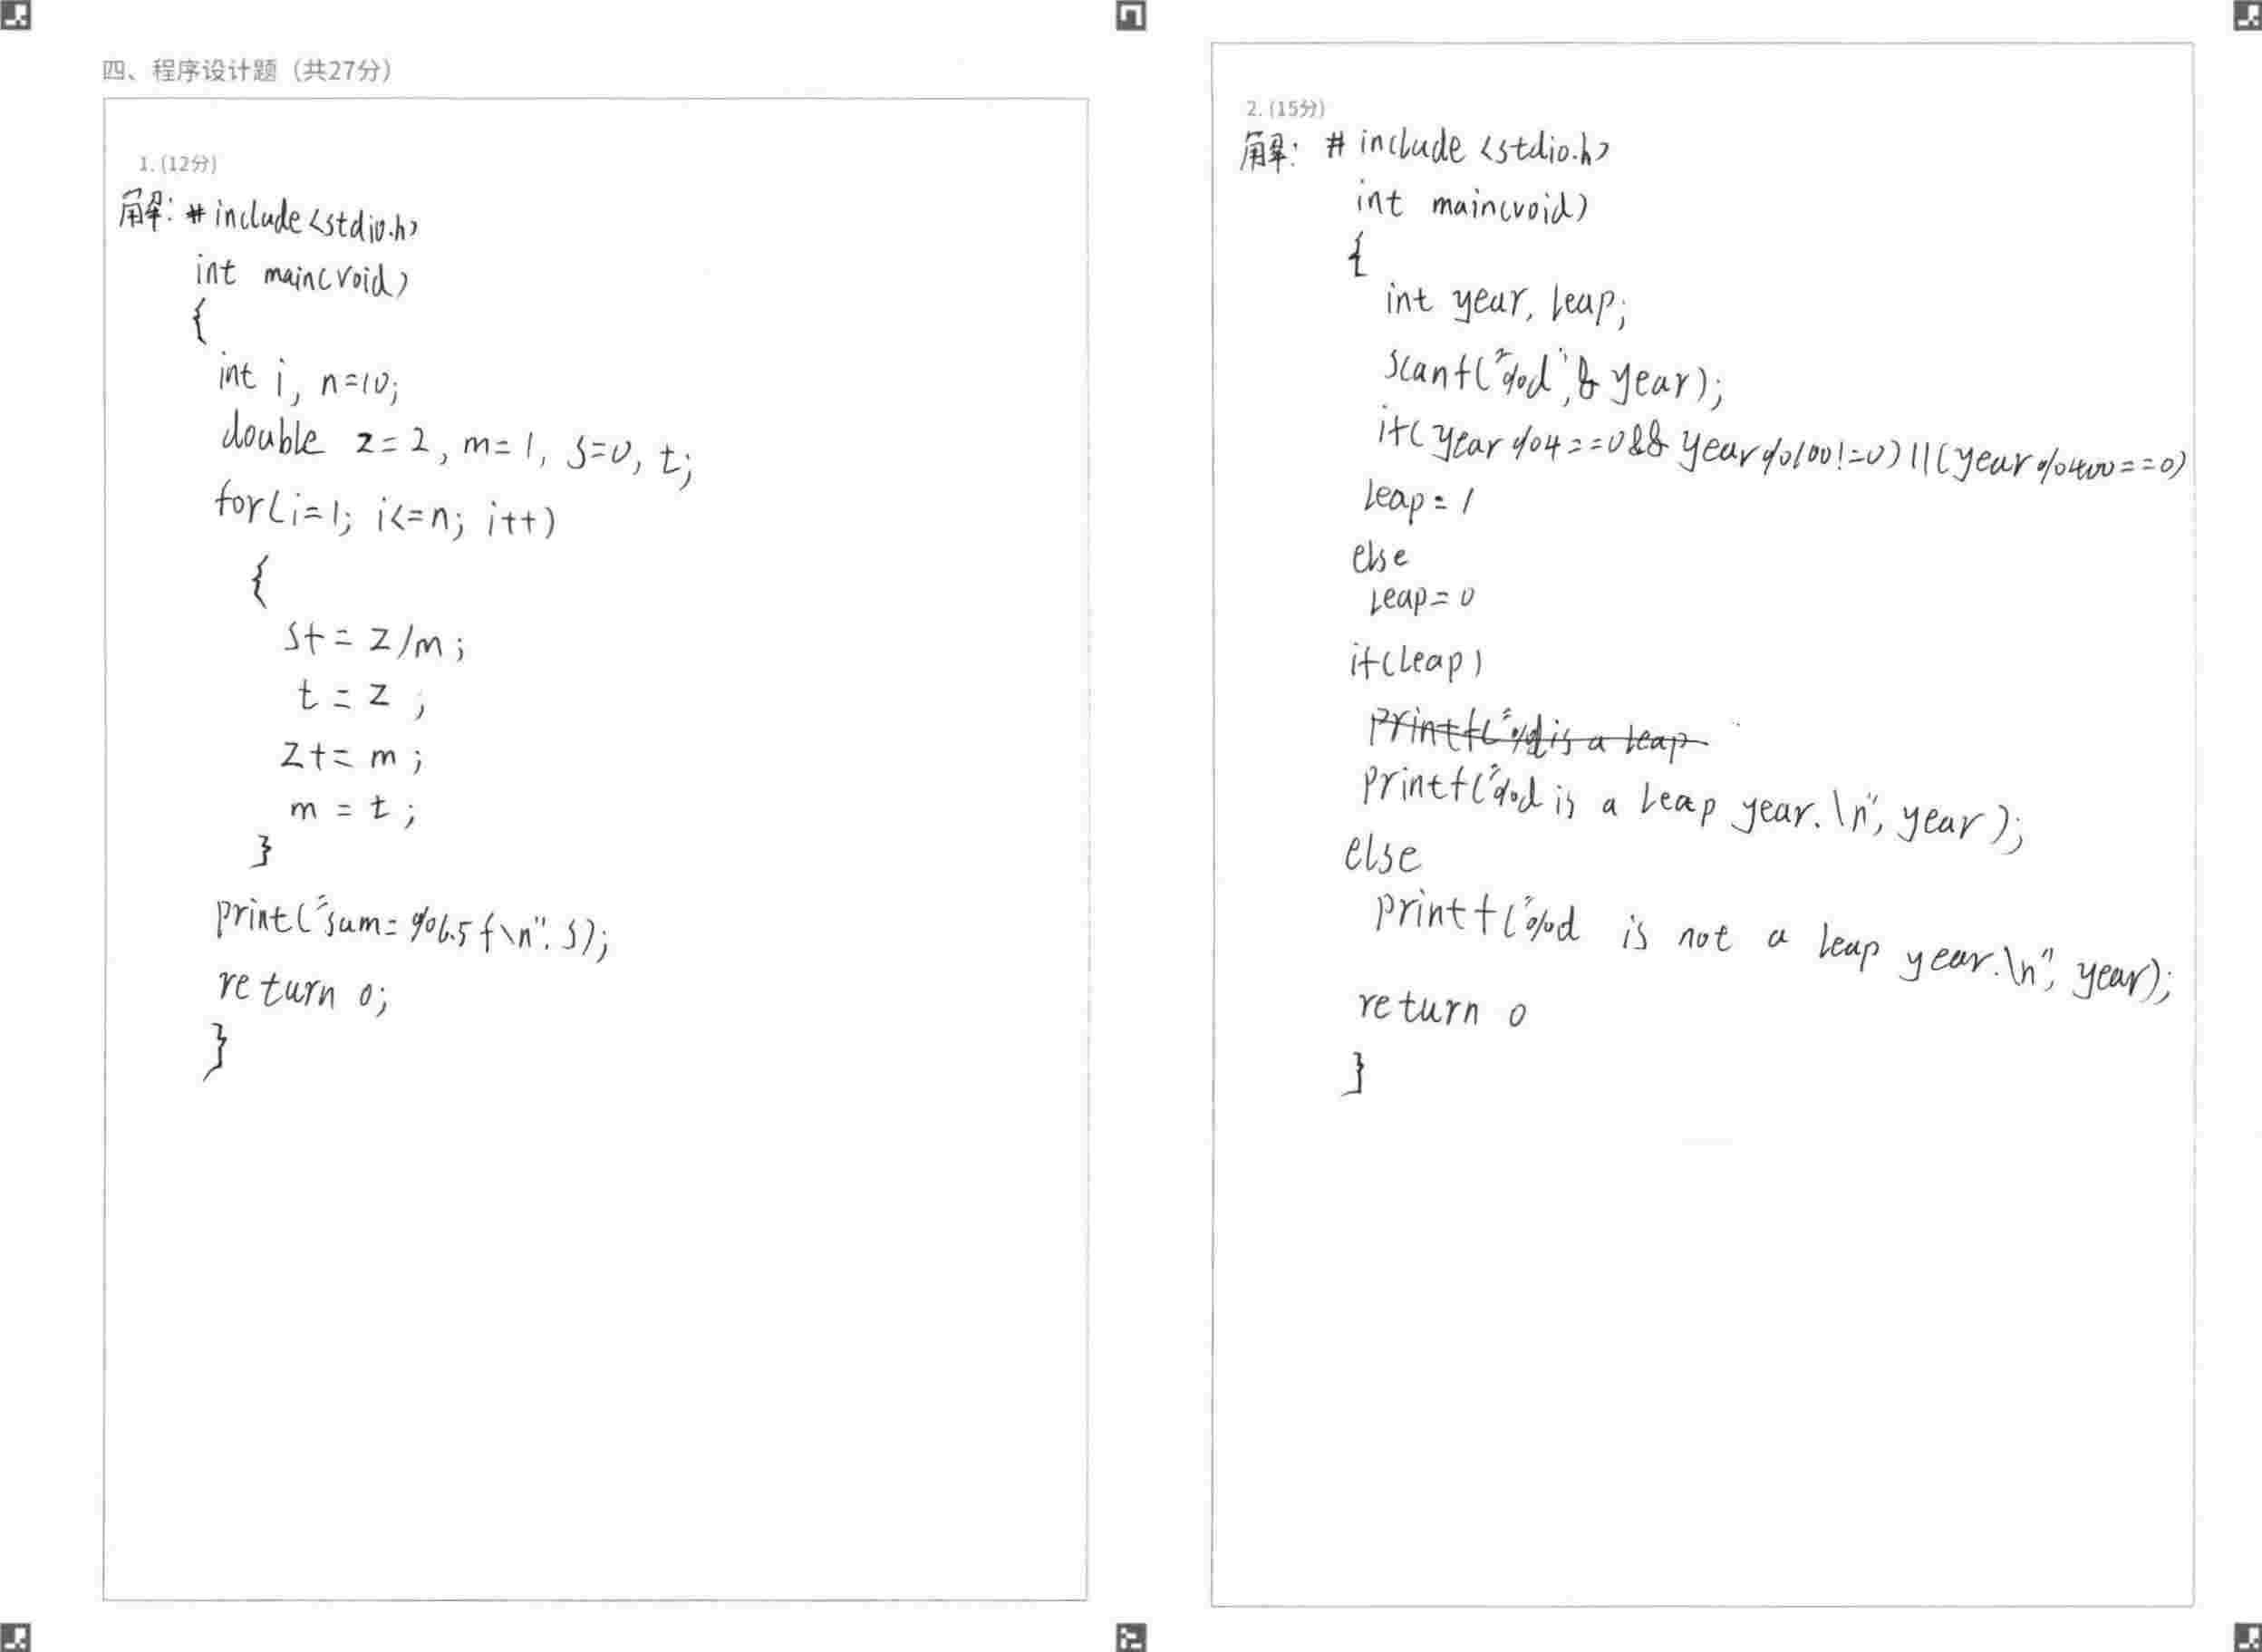 四、程序设计题（共27分）
1.(12分)
解: #include<stdio.h>
int main(void)
{
int i, n=10;
double z=2, m=1, s=0, t;
for(i=1; i<=n; i++)
{
s+=z/m;
t=z;
z+=m;
m=t;
}
print("sum=%6.5f\n".s);
return 0;
}
2.(15分)
解: #include <stdio.h>
int main(void)
{
int year, leap;
scanf("%d",&year);
if(year%4==0&&year%100!=0)||(year%400==0)
leap=1
else
leap=0
if(leap)
printf("%d is a leap
printf("%d is a leap year.\n", year);
else
printf("%d is not a leap year.\n", year);
return 0
}